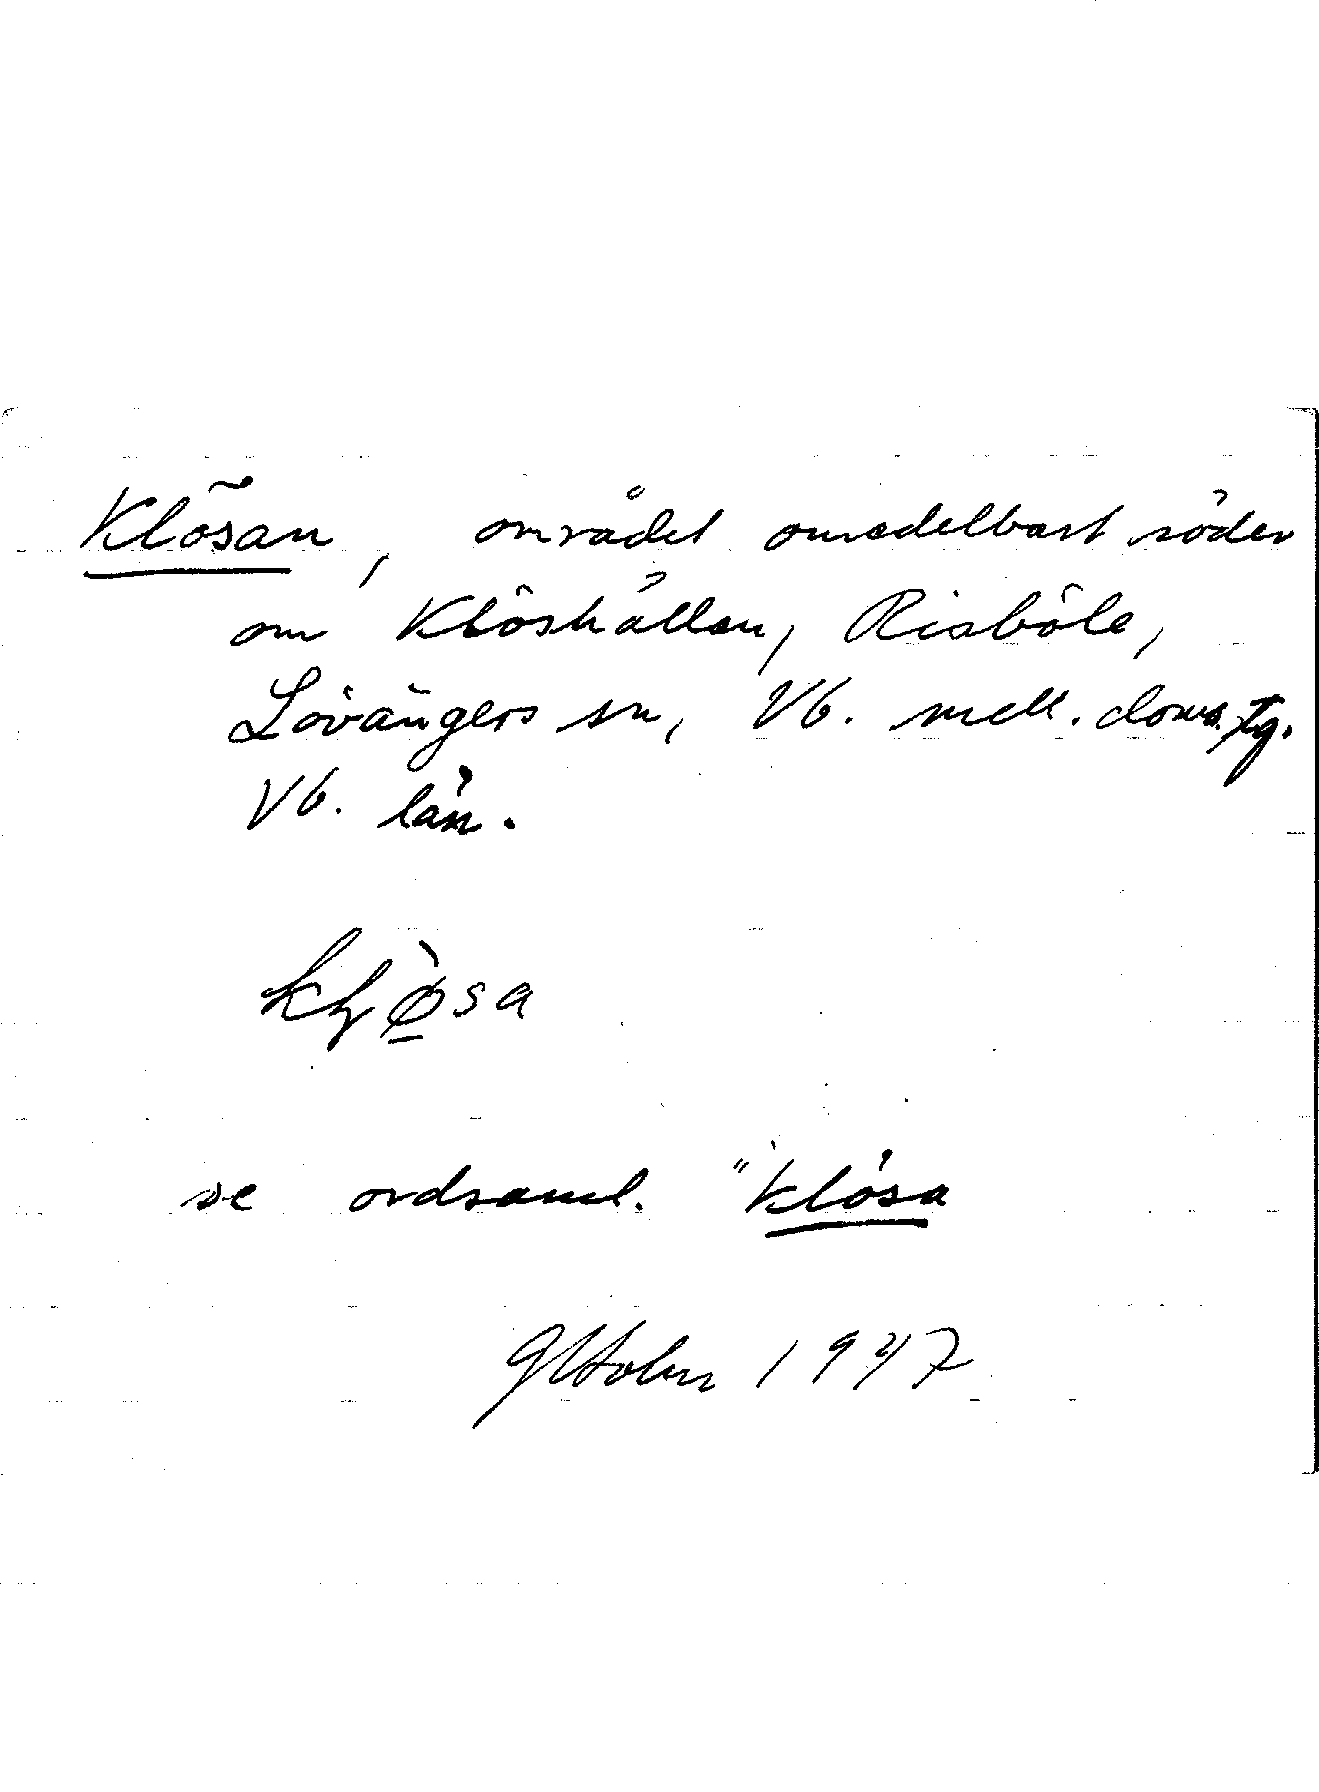 Klösan, området omedelbart söder
om Klöshällan, Risböle,
Lövångers sn, Vb. mell. doms. tg.
Vb. län.
se ordsaml. "klösa
1947